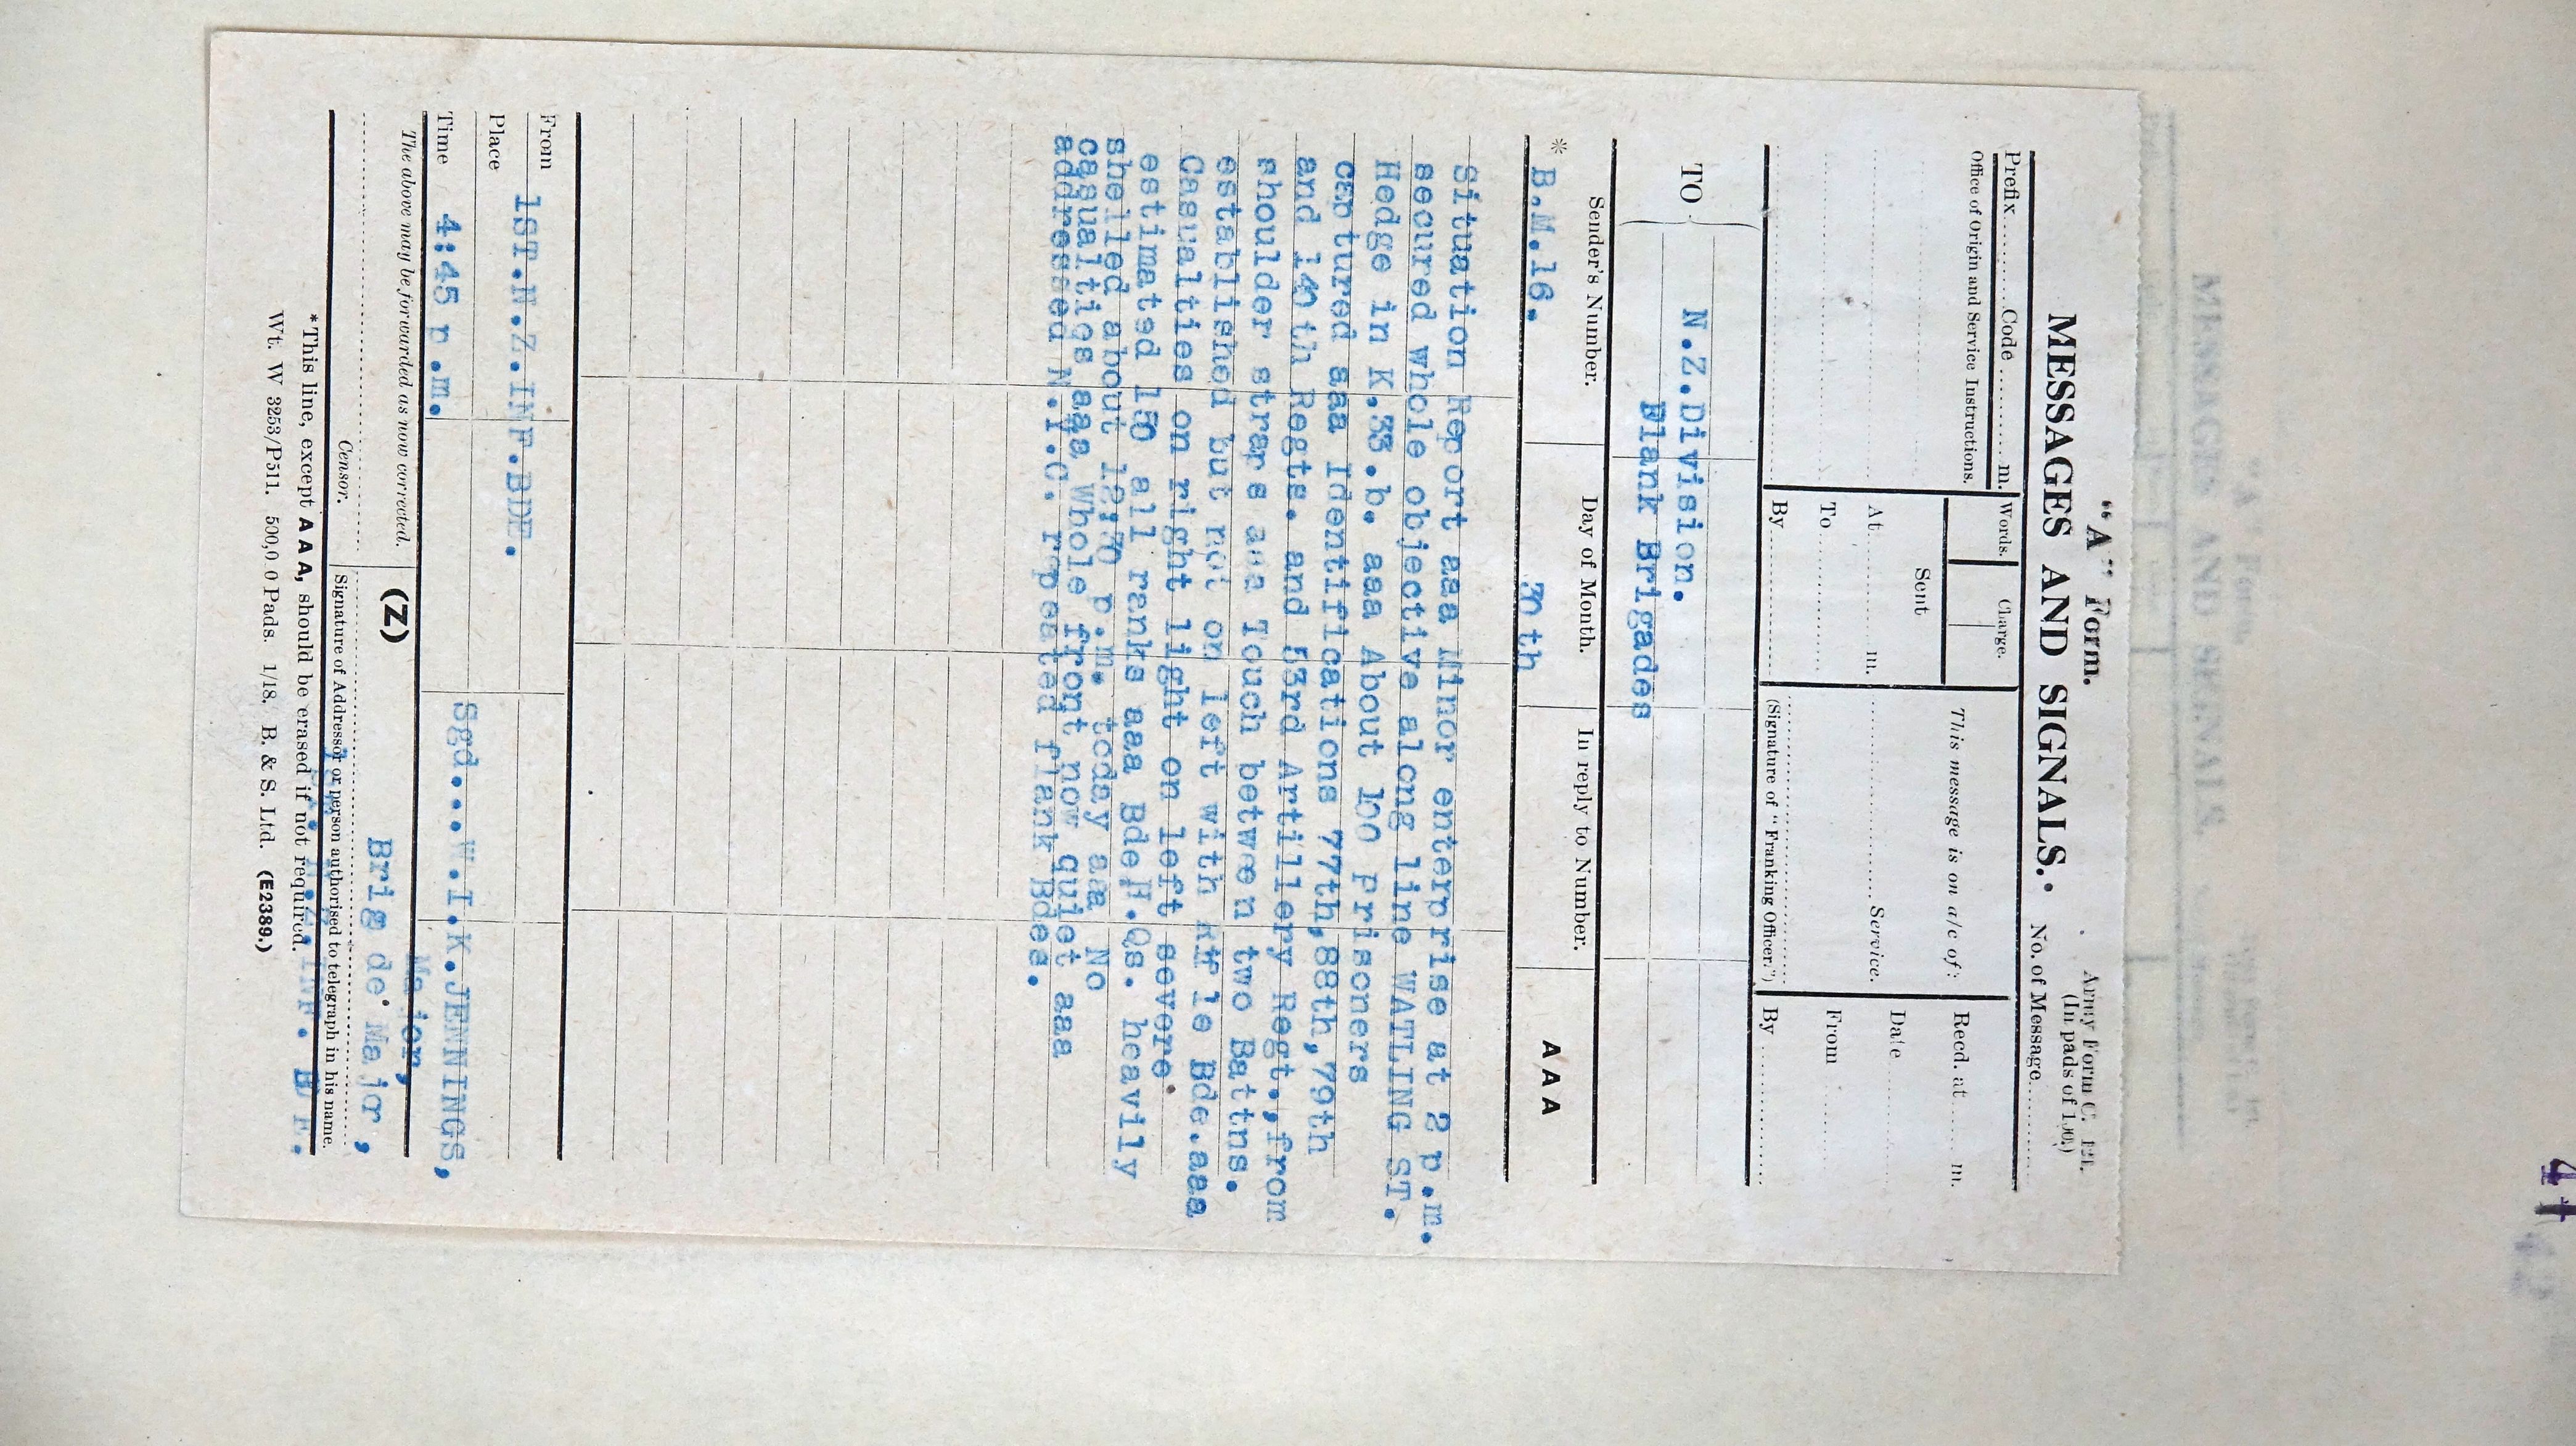 "A" Form.
Army Form C. 121.
(In pads of 100.)
MESSAGES AND SIGNALS.
No. of Message
Prefix Code m.
Words.
Charge.
This message is on a/c of:
Recd. at m.
Office of Origin and Service Instructions.
Sent
Date
At m.
Service.
From
To
By
(Signature of "Franking Officer.")
By
TO
N.Z.Division.
Flank Brigades
Sender's Number.
Day of Month.
In reply to Number.
AAA
* B.M.16.
30th
Situation Report aaa Minor enterprise at 2 p.m.
secured whole objective along line WATLING ST.
Hedge in K.33.b. aaa About 100 prisoners
captured aaa Identifications 77th,88th,79th
and 140th Regts. and 53rd Artillery Regt.,from
shoulder straps aaa Touch between two Battns.
established but not on left with Rifle Bde.aaa
Casualties on right light on left severe
estimated 150 all ranks aaa Bde.H.Qs. heavily
shelled about 12:30 p.m. today aaa No
casualties aaa Whole front now quiet aaa
addressed N.Z.G. repeated flank Bdes.
From 1ST.N.Z.INF.BDE.
Place
Time 4:45 p.m.
Sgd...W.I.K.JENNINGS,
Major,
The above may be forwarded as now corrected.
(Z)
Brigde Major,
Censor.
Signature of Addressor or person authorised to telegraph in his name.
INF. BDE.
* This line, except AAA, should be erased if not required.
Wt. W 3253/P511. 500,000 Pads. 1/18. B. & S. Ltd. (E2389.)